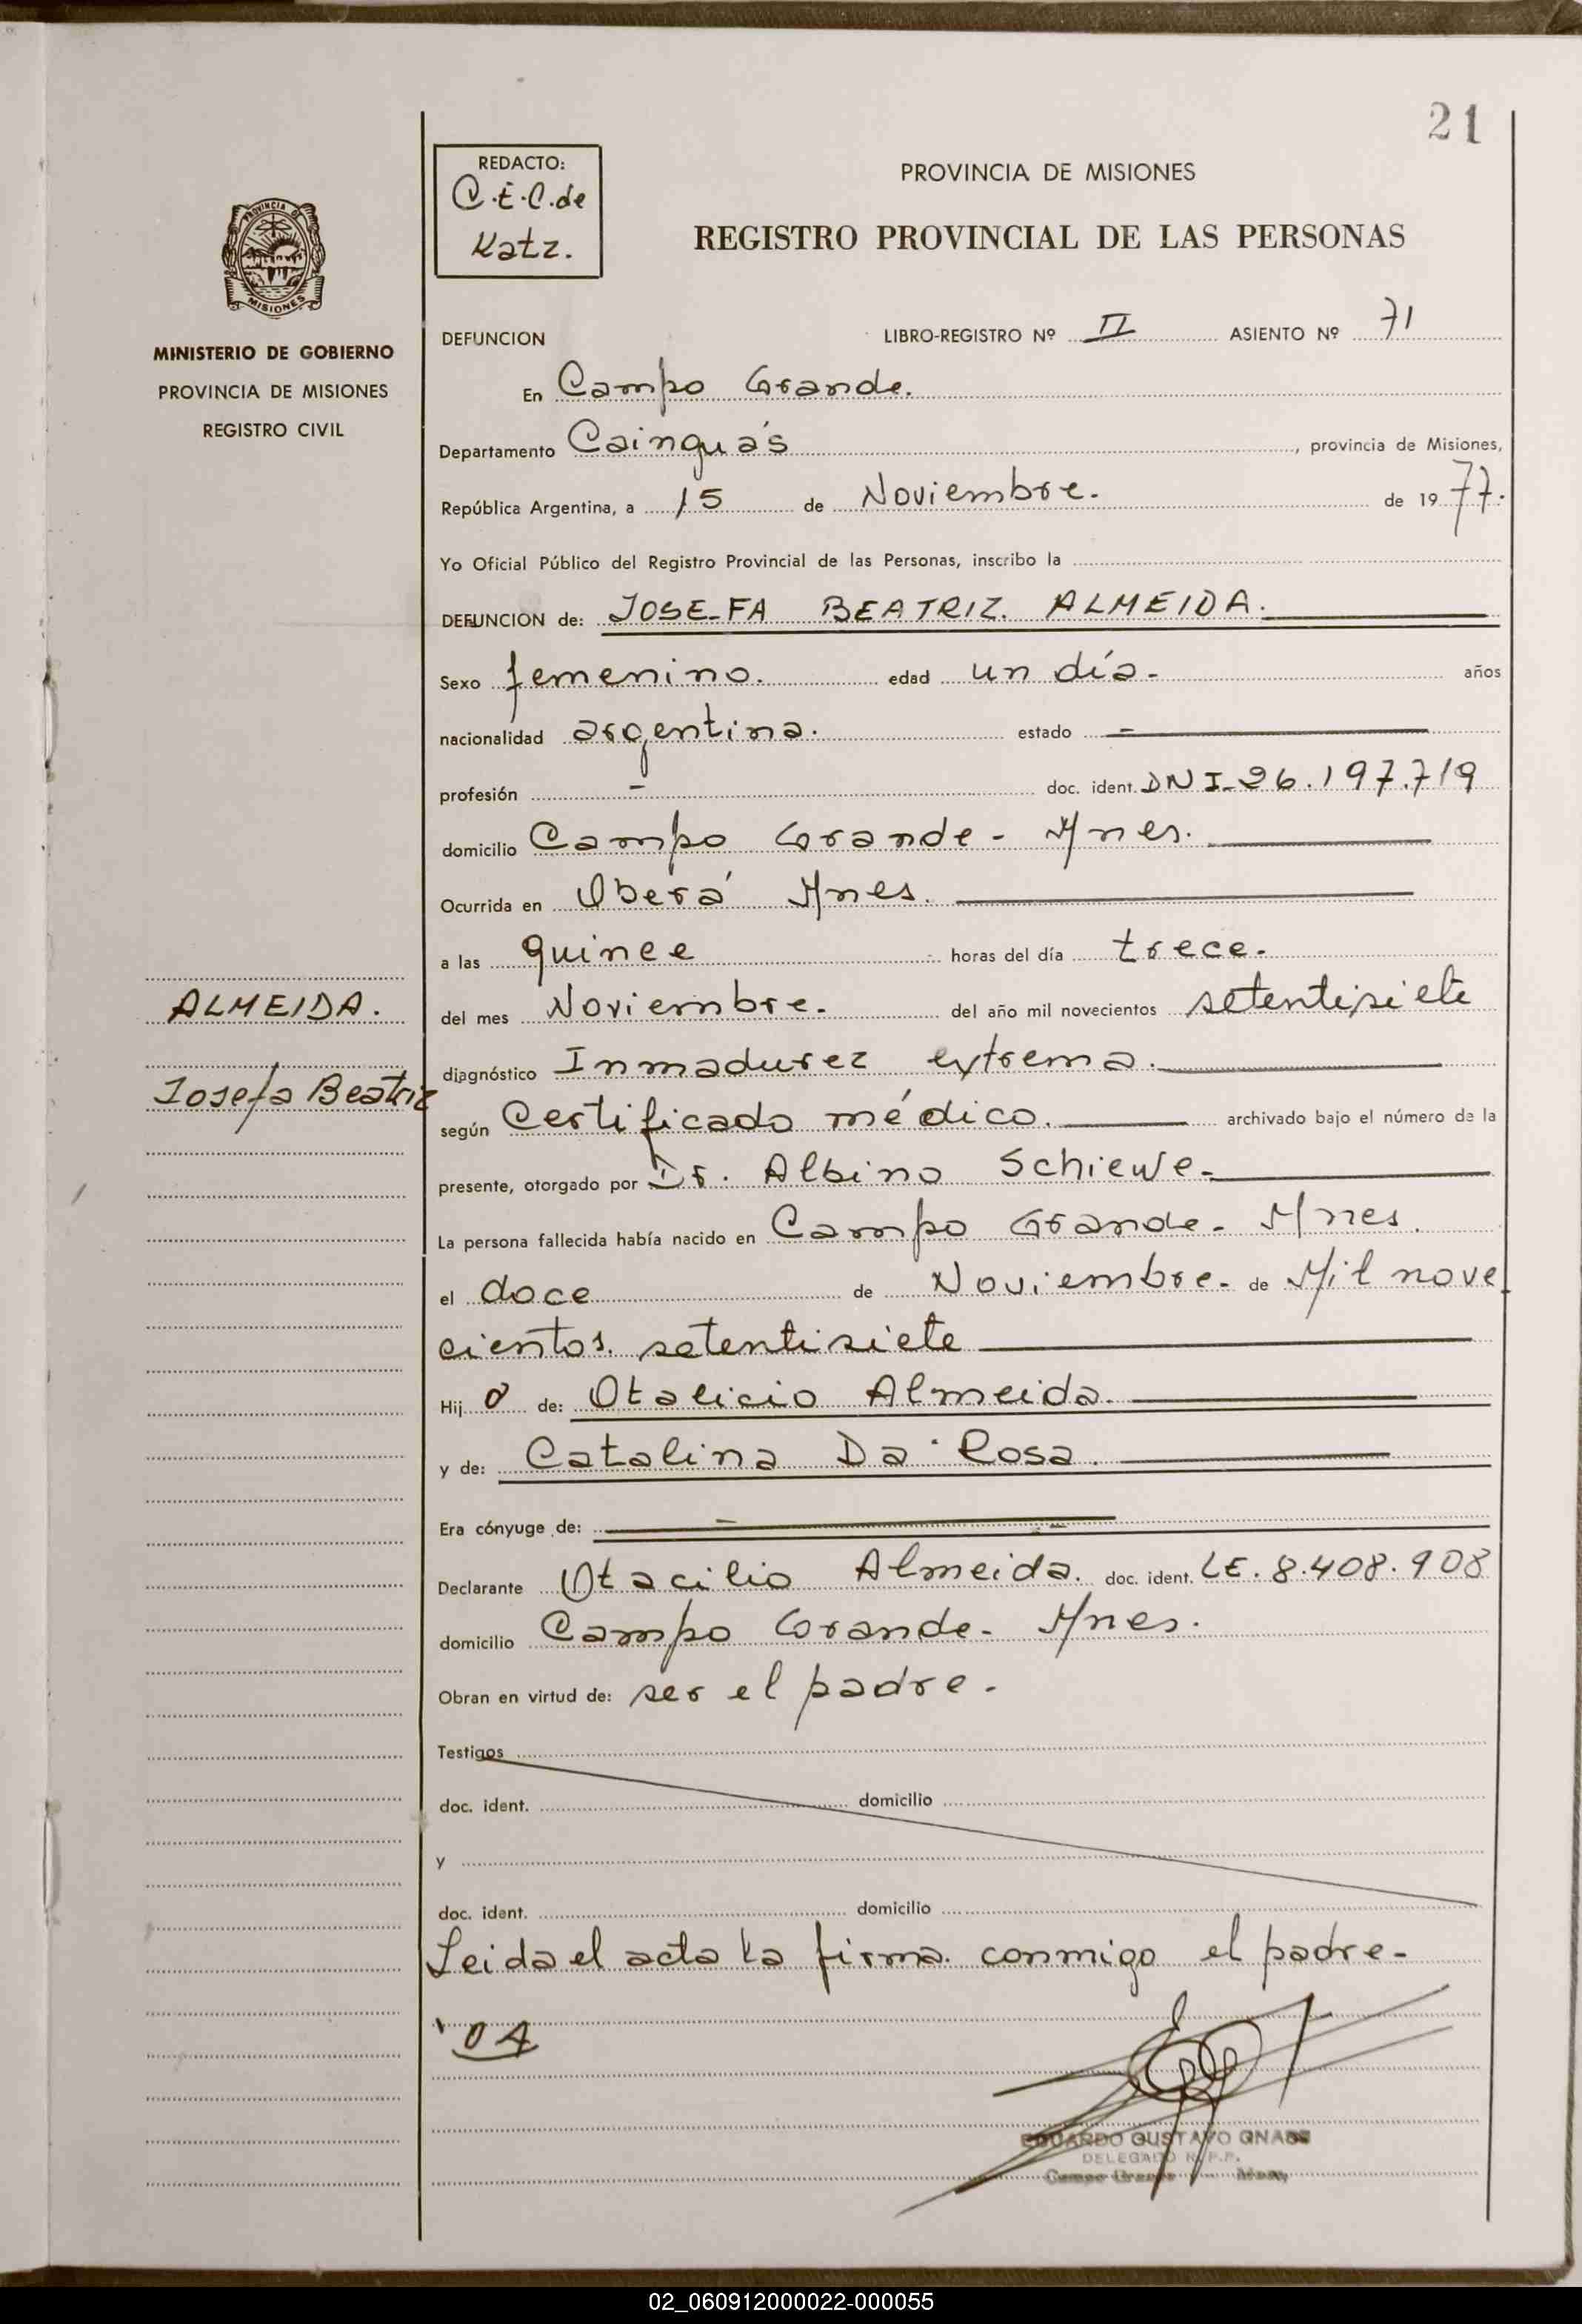 21
REDACTO:
C.E.C. de
Katz.
PROVINCIA DE MISIONES
REGISTRO PROVINCIAL DE LAS PERSONAS
PROVINCIA DE
MISIONES
MINISTERIO DE GOBIERNO
PROVINCIA DE MISIONES
REGISTRO CIVIL
DEFUNCION LIBRO-REGISTRO Nº II ASIENTO Nº 71
En Campo Grande.
Departamento Cainguás, provincia de Misiones,
República Argentina, a 15 de Noviembre. de 1977.
Yo Oficial Público del Registro Provincial de las Personas, inscribo la
DEFUNCION de: JOSEFA BEATRIZ ALMEIDA.
Sexo femenino. edad un día- años
nacionalidad argentina. estado -
profesión - doc. ident. DNI-26.197.719
domicilio Campo Grande - Mnes.
Ocurrida en Oberá Mnes.
a las quince horas del día trece.
del mes Noviembre. del año mil novecientos setentisiete
diagnóstico Inmadurez extrema.
según Certificado médico. archivado bajo el número de la
presente, otorgado por Dr. Albino Schiewe-
La persona fallecida había nacido en Campo Grande- Mnes.
el doce de Noviembre- de Mil nove
cientos setentisiete
Hija de: Otalicio Almeida.
y de: Catalina Da Rosa.
Era cónyuge de: - -
Declarante Otacilio Almeida. doc. ident. LE. 8.408.908
domicilio Campo Grande- Mnes.
Obran en virtud de: ser el padre-
Testigos
doc. ident. domicilio
y
doc. ident. domicilio
Leida el acta la firma conmigo el padre-
OA
EDUARDO GUSTAVO GNASS
DELEGADO R.P.P.
Campo Grande - Mnes,
ALMEIDA.
Josefa Beatriz
02_060912000022-000055